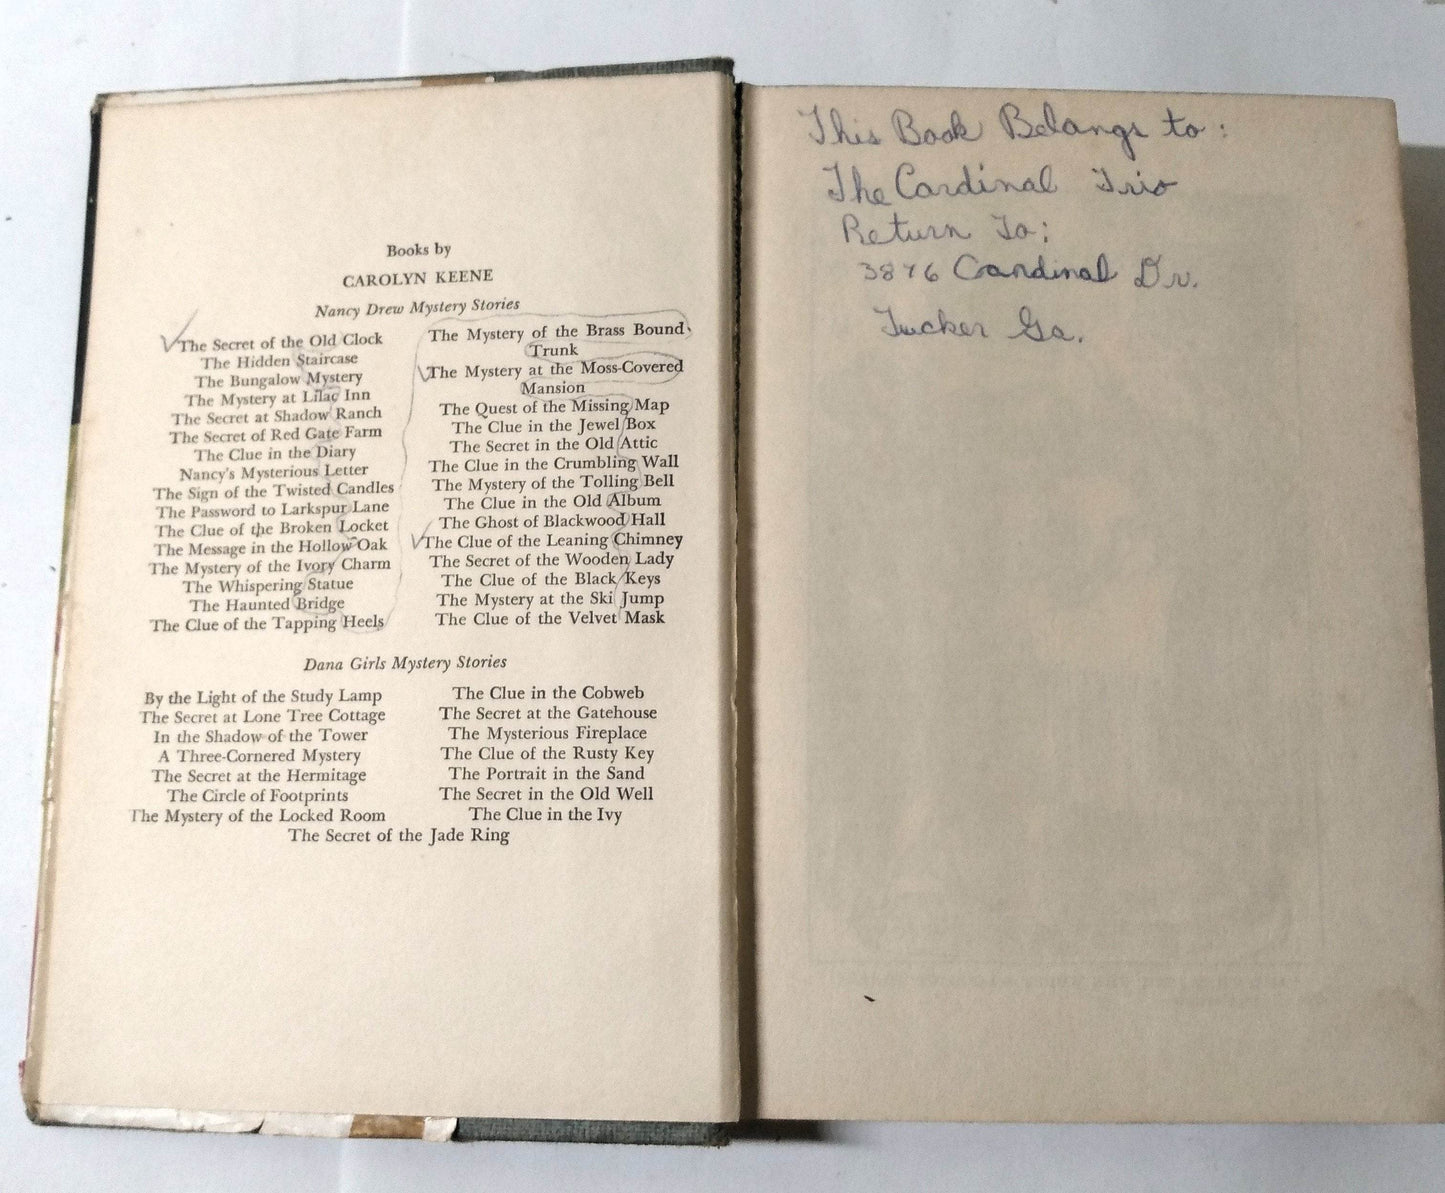 Books by
CAROLYN KEENE
Nancy Drew Mystery Stories
The Secret of the Old Clock
The Hidden Staircase
The Bungalow Mystery
The Mystery at Lilac Inn
The Secret at Shadow Ranch
The Secret of Red Gate Farm
The Clue in the Diary
Nancy's Mysterious Letter
The Sign of the Twisted Candles
The Password to Larkspur Lane
The Clue of the Broken Locket
The Message in the Hollow Oak
The Mystery of the Ivory Charm
The Whispering Statue
The Haunted Bridge
The Clue of the Tapping Heels
The Mystery of the Brass Bound
Trunk
The Mystery at the Moss-Covered
Mansion
The Quest of the Missing Map
The Clue in the Jewel Box
The Secret in the Old Attic
The Clue in the Crumbling Wall
The Mystery of the Tolling Bell
The Clue in the Old Album
The Ghost of Blackwood Hall
The Clue of the Leaning Chimney
The Secret of the Wooden Lady
The Clue of the Black Keys
The Mystery at the Ski Jump
The Clue of the Velvet Mask
Dana Girls Mystery Stories
By the Light of the Study Lamp
The Secret at Lone Tree Cottage
In the Shadow of the Tower
A Three-Cornered Mystery
The Secret at the Hermitage
The Circle of Footprints
The Mystery of the Locked Room
The Clue in the Cobweb
The Secret at the Gatehouse
The Mysterious Fireplace
The Clue of the Rusty Key
The Portrait in the Sand
The Secret in the Old Well
The Clue in the Ivy
The Secret of the Jade Ring
This Book Belongs to:
The Cardinal Trio
Return To:
Cardinal Dr.
Tucker Ga.